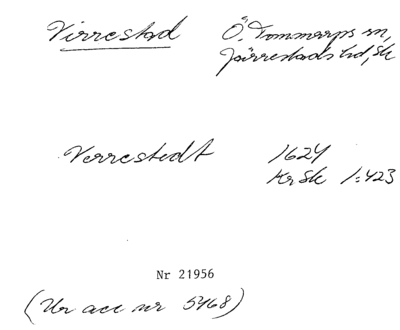 Virrestad Ö. Tommarps sn,
Järrestads hd, Sk
Verrestedt 1624
Kr Sk 1:423
Nr 21956
(Ur acc nr 5468)